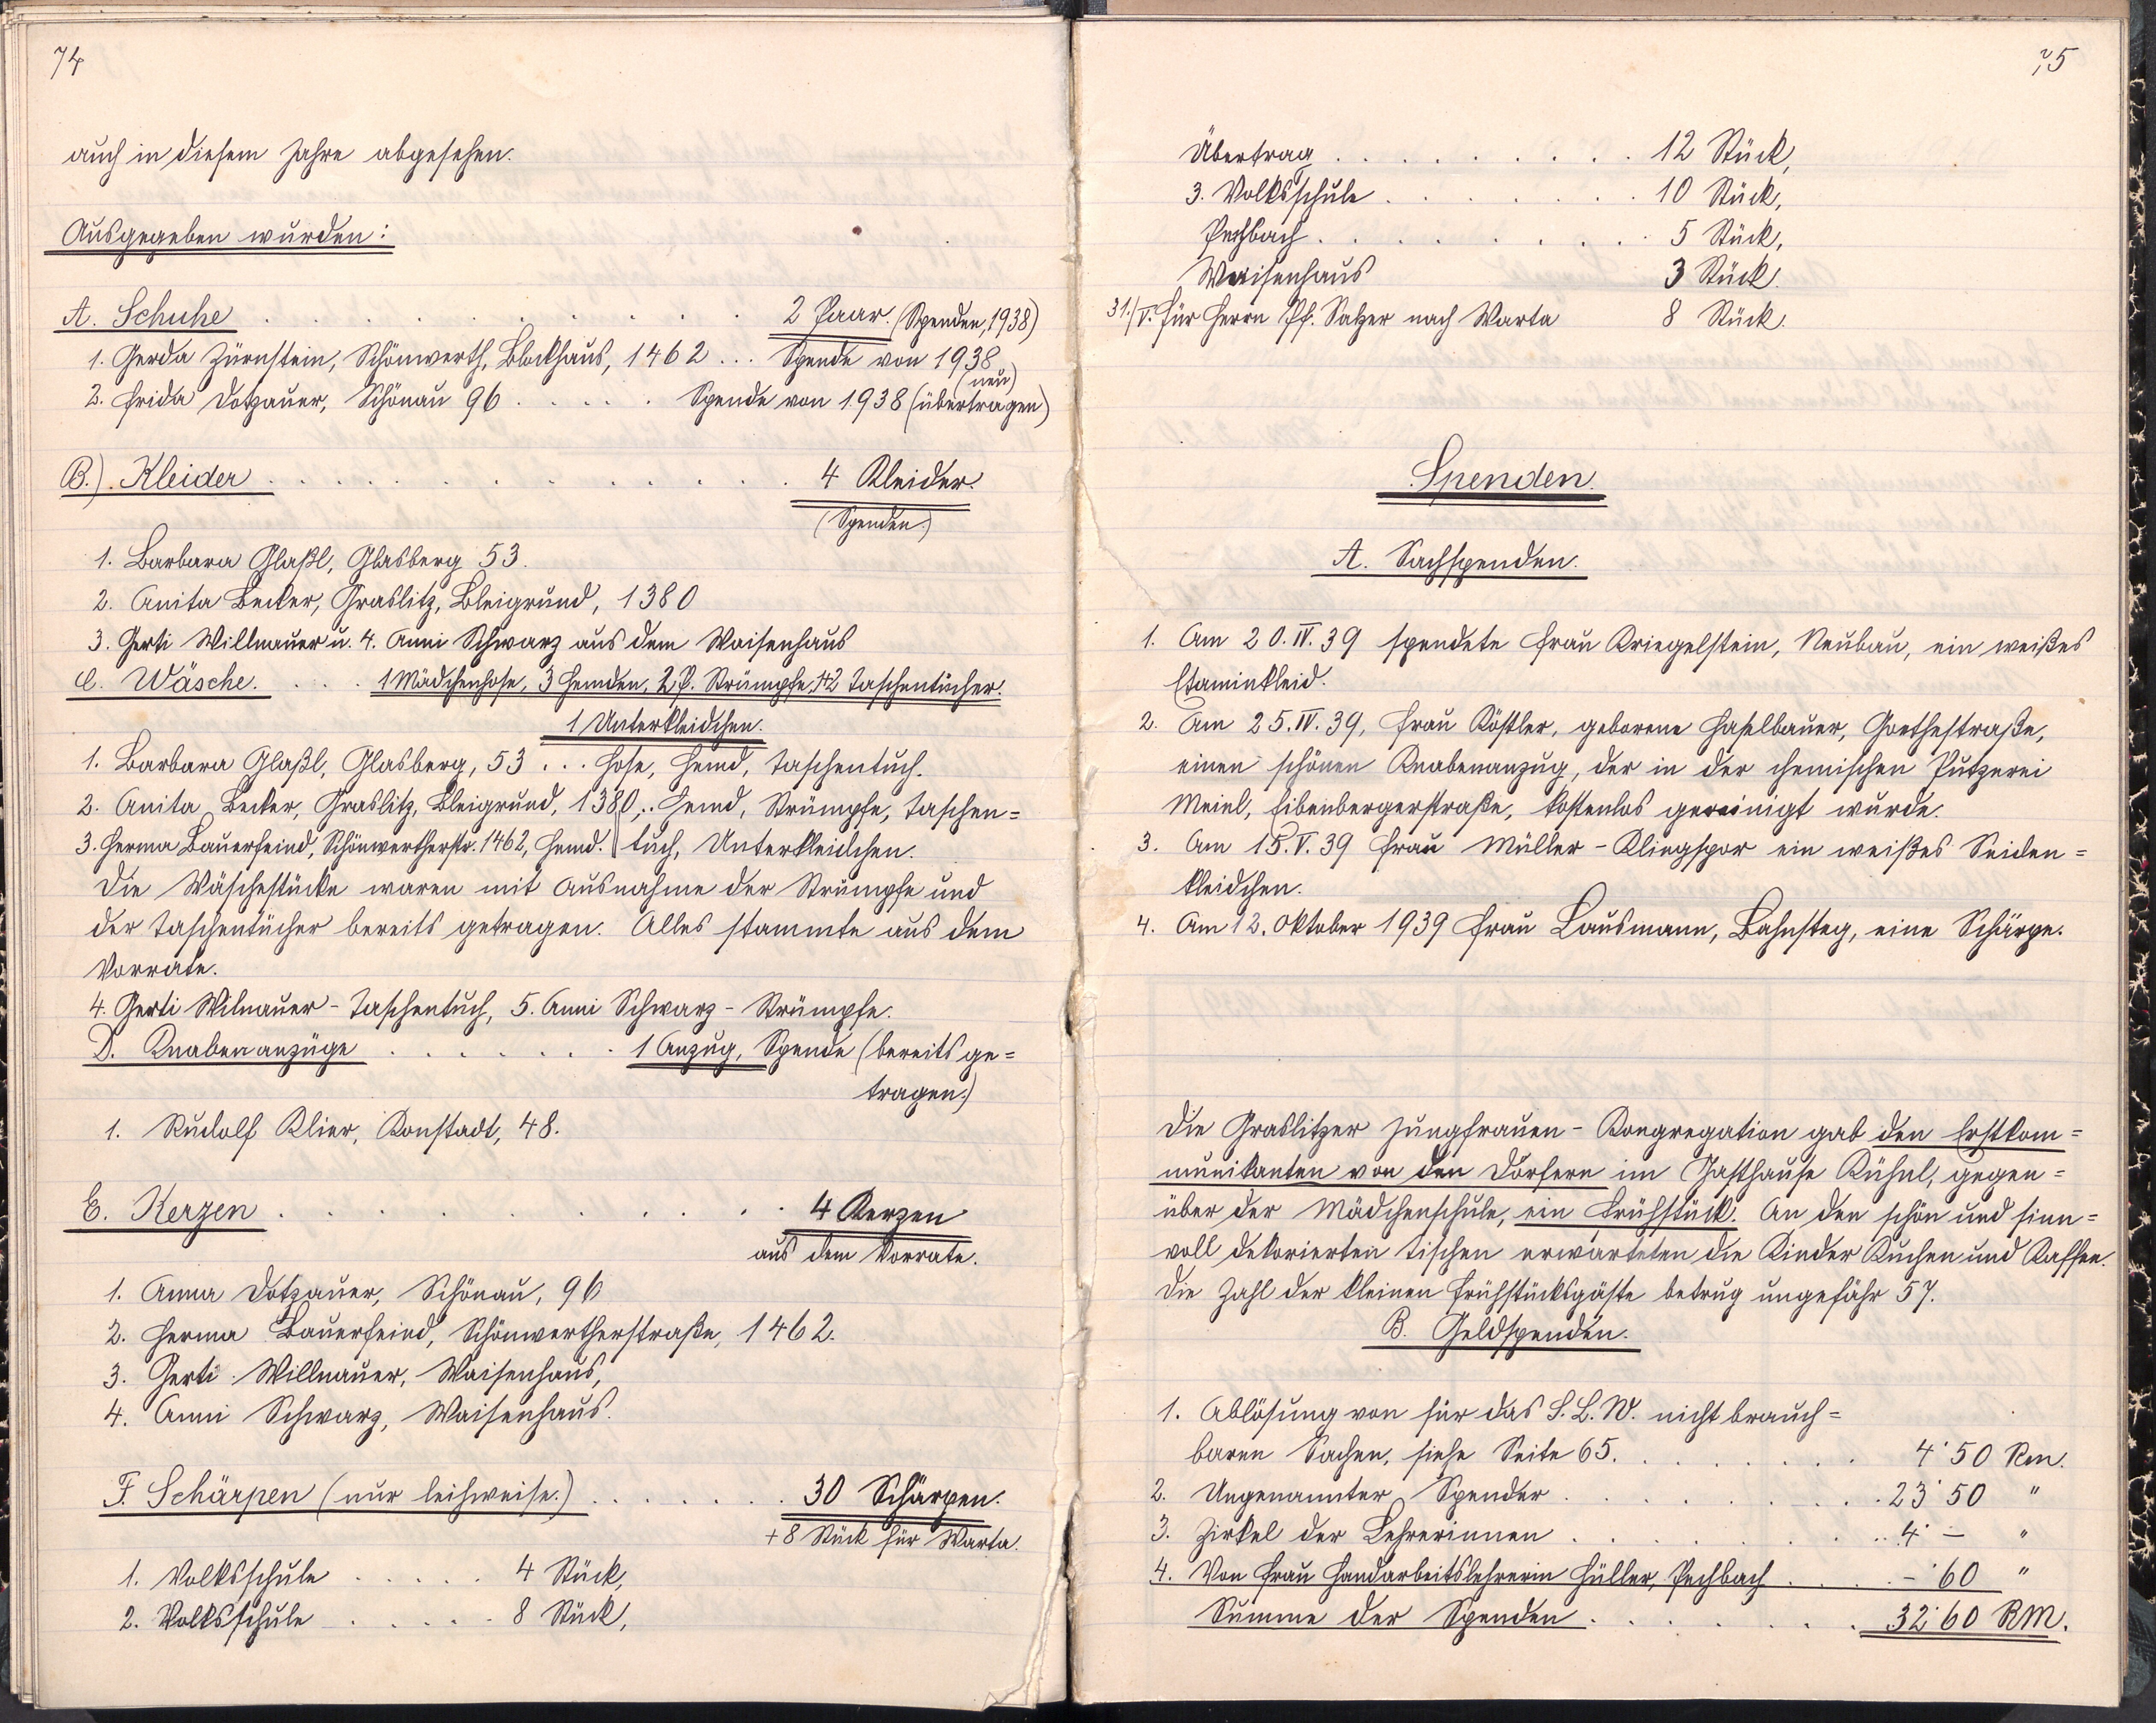 74
auch in diesem Jahre abgesehen.
Ausgegeben wurden:
A. Schuhe . . . . . . . . . . 2 Paar. (Spenden, 1938)
1. Gerda Zürnstein, Schönwerth, Blockhaus, 1462 ... Spende von 1938
(neu)
2. Frida Dotzauer, Schönau 96 . . . . . Spende von 1938 (übertragen)
B.) Kleider . . . . . . . . . . . . 4 Kleider.
(Spenden.)
1. Barbara Glaßl, Glasberg 53.
2. Anita Becker, Graslitz, Bleigrund, 1380
3. Gerti Willnauer u. 4. Anni Schwarz aus dem Waisenhaus
C. Wäsche. . . . 1 Mädchenhose, 3 Hemden, 2 P. Strümpfe, 2 Taschentücher.
1 Unterkleidchen.
1. Barbara Glaßl, Glasberg, 53 ... Hose, Hemd, Taschentuch.
2. Anita Becker, Graslitz, Bleigrund, 1380, . Hemd, Strümpfe, Taschen=
3. Herma Bauerfeind, Schönwertherstr. 1462, Hemd. || tuch, Unterkleidchen.
Die Wäschestücke waren mit Ausnahme der Strümpfe und
der Taschentücher bereits getragen. Alles stammte aus dem
Vorrate.
4. Gerti Wilnauer - Taschentuch, 5. Anni Schwarz - Strümpfe.
D. Knabenanzüge . . . . . . . 1 Anzug, Spende (bereits ge=
tragen.)
1. Rudolf Klier, Konstadt, 48.
E. Kerzen . . . . . . . . . . 4 Kerzen
aus dem Vorrate.
1. Anna Dotzauer, Schönau, 96
2. Herma Bauerfeind, Schönwertherstraße, 1462.
3. Gerti Willnauer, Waisenhaus,
4. Anni Schwarz, Waisenhaus.
F. Schärpen (nur leihweise.) . . . . . . . 30 Schärpen.
+ 8 Stück für Warta.
1. Volksschule . . . . . 4 Stück,
2. Volksschule . . . . . 8 Stück,
75
Übertrag . . . . . . . . . . 12 Stück,
3. Volksschule . . . . . . . . 10 Stück,
Pechbach . . . . . . . . . . 5 Stück,
Waisenhaus 3 Stück.
31./V. Für Herrn Pf. Salzer nach Warta 8 Stück.
Spenden.
A. Sachspenden.
1. Am 20.IV.39 spendete Frau Kriegelstein, Neubau, ein weißes
Etaminkleid.
2. Am 25.IV.39, Frau Köstler, geborene Haselbauer, Goethestraße,
einen schönen Knabenanzug, der in der chemischen Putzerei
Meinl, Eibenbergerstraße, kostenlos gereinigt wurde.
3. Am 15.V.39 Frau Müller-Klingspor ein weißes Seiden=
kleidchen.
4. Am 12. Oktober 1939 Frau Lausmann, Bahnsteg, eine Schärpe.
Die Graslitzer Jungfrauen-Kongregation gab den Erstkom=
munikanten von den Dörfern im Gasthause Kühnl, gegen=
über der Mädchenschule, ein Frühstück. An den schön und sinn=
voll dekorierten Tischen erwarteten die Kinder Kuchen und Kaffee.
Die Zahl der kleinen Frühstücksgäste betrug ungefähr 57.
B. Geldspenden.
1. Ablösung von für das S.L.W. nicht brauch=
baren Sachen, siehe Seite 65. . . . . . . . 4˙50 Rm.
2. Ungenannter Spender . . . . . . . . . 23˙50 "
3. Zirkel der Lehrerinnen . . . . . . . . . 4˙— "
4. Von Frau Handarbeitslehrerin Hüller, Pechbach . . . . —˙60 "
Summe der Spenden . . . . . . . 32˙60 RM.